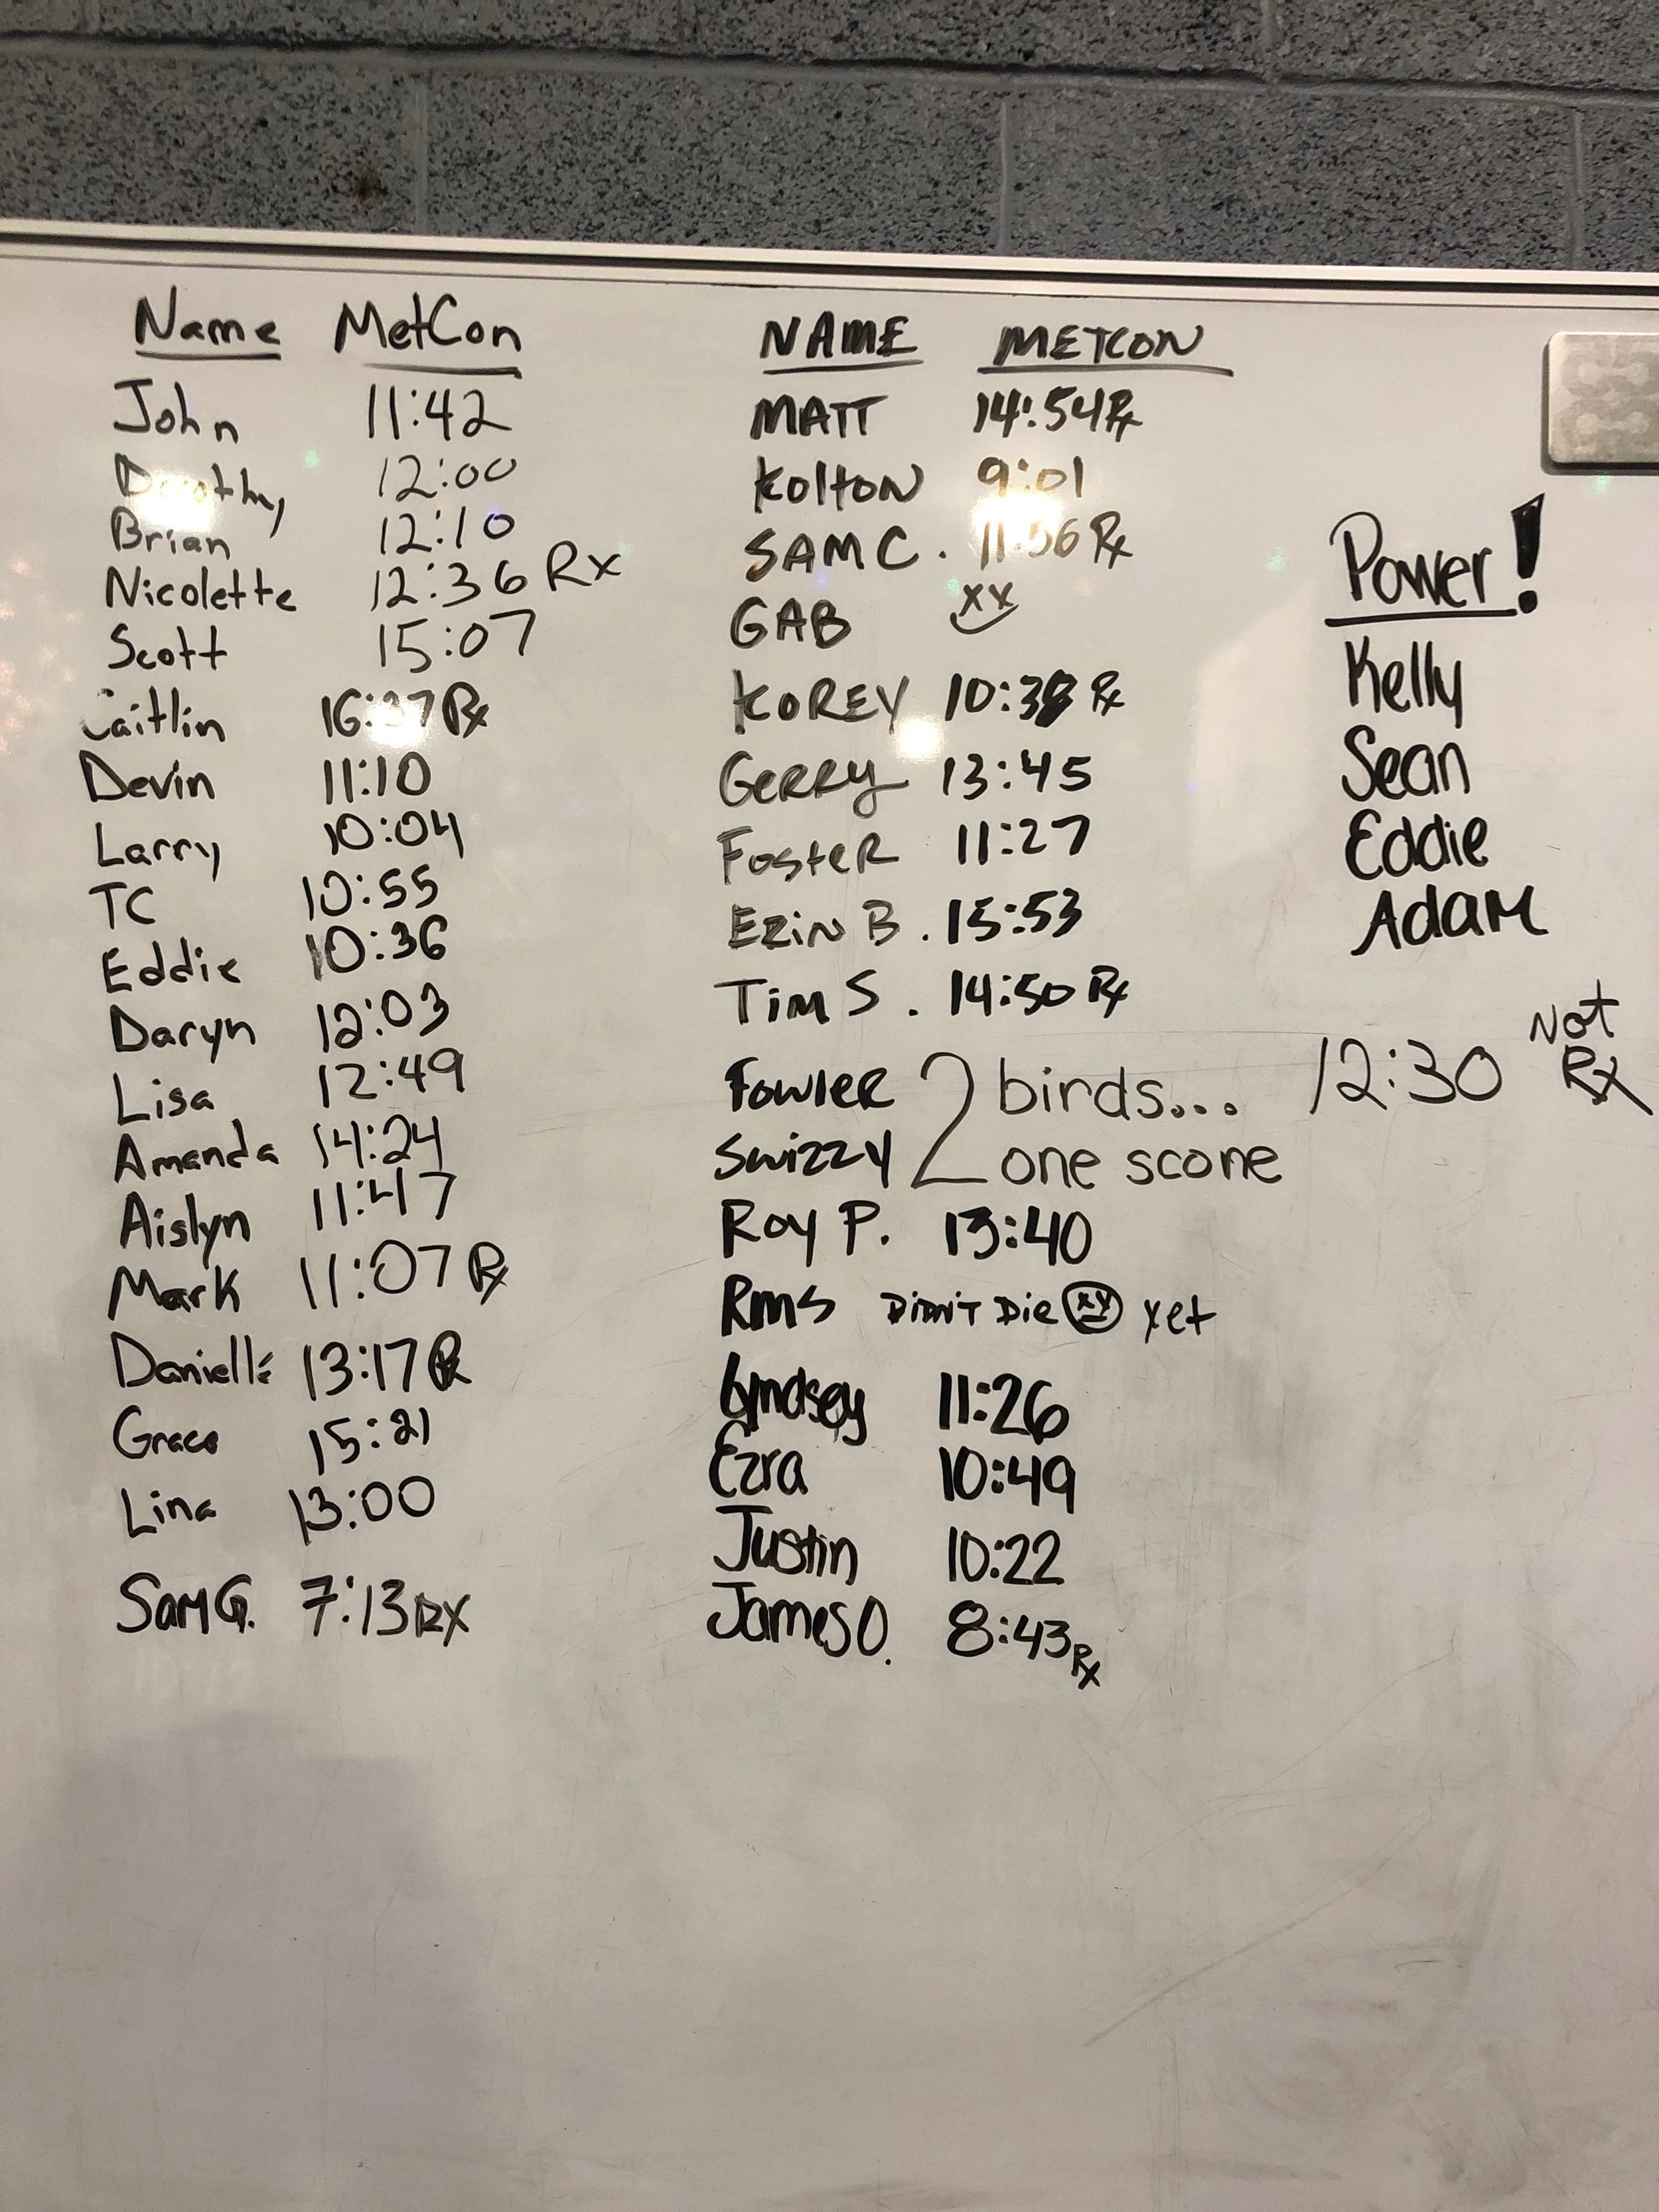 Name MetCon
John 11:42
Dorothy 12:00
Brian 12:10
Nicolette 12:36 Rx
Scott 15:07
Caitlin 16:37 Rx
Devin 11:10
Larry 10:04
TC 10:55
Eddie 10:36
Daryn 12:03
Lisa 12:49
Amanda 14:24
Aislyn 11:47
Mark 11:07 Rx
Danielle 13:17 Rx
Grace 15:21
Lina 13:00
Sam G. 7:13 RX
NAME METCON
MATT 14:54 Rx
Kolton 9:01
SAM C. 11:56 Rx
GAB xx
KOREY Rx
GERRY 13:45
FOSTER 11:27
ERIN B. 15:53
Tim S. 14:50 Rx
Fowler 2 birds... 12:30 Not Rx
Swizzy one scone
Roy P. 13:40
Rms DiDN'T Die yet
Lyndsey 11:26
Ezra 10:49
Justin 10:22
James O. 8:43 Rx
Power!
Kelly
Sean
Eddie
Adam